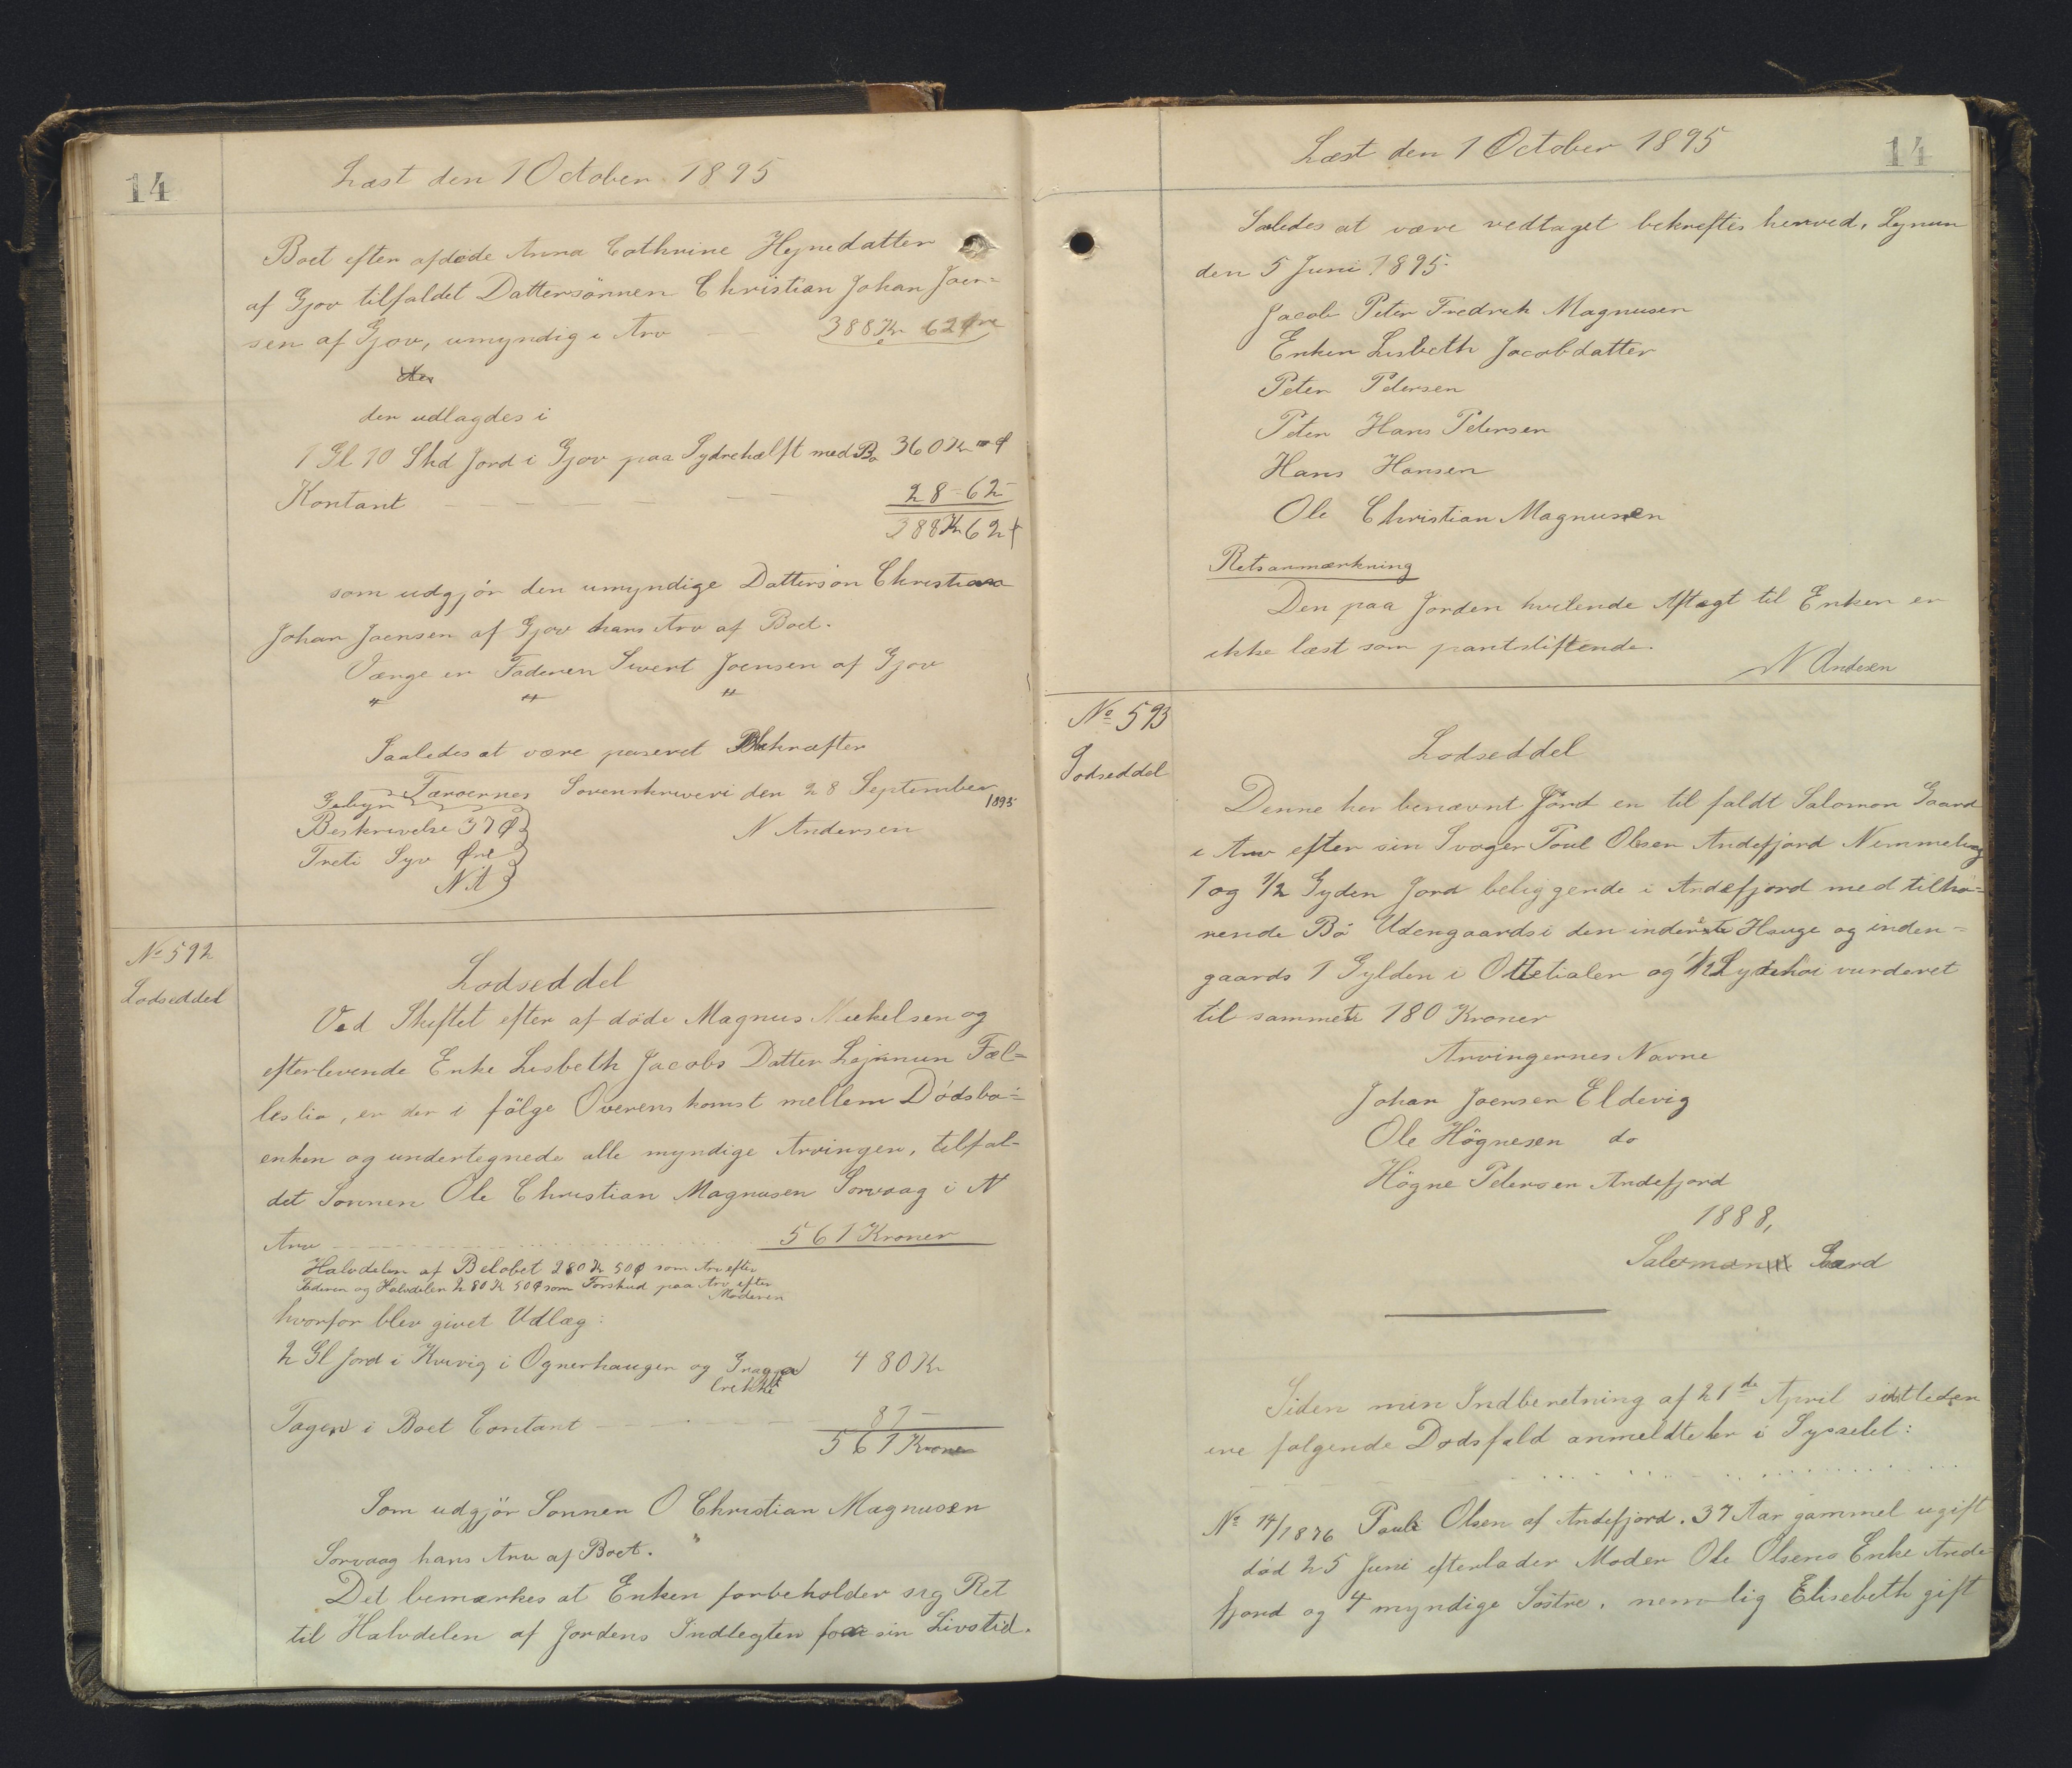 14
Læst den 1 October 1895
Boet efter afdøde Anna Cathrine Hejnedatter
af Gjov tilfaldet Dattersönnen Christian Johan Joen-
sen af Gjov, umyndig i Arv 388 Kr 62 Øre
der udlagdes i
1 Gl 10 Skd Jord i Gjov paa Sydrehalft med Bø 360 Kr " Ø
Kontant 28-62
388 Kr 62 Ø
som udgjör den umyndige Dattersön Christian
Johan Joensen af Gjov hans Arv af Boet.
Værge er Faderen Sivert Joensen af Gjov
" " "
Saaledes at være paseret Bekræfter
Færøernes Sorenskriveri den 28 September
1895
Gebyr
Beskrivelse 37 Ø
N Andersen
Treti Syv Øre
N.A
No 592
Lodseddel
Lodseddel
Ved Skiftet efter af döde Magnus Miekelsen og
efterlevende Enke Lisbeth Jacobs Datter Lejnum Fæl-
leslia, er der i fölge Overenskomst mellem Dödsbo-
enken og undertegnede alle myndige Arvinger, tilfal-
det Sønnen Ole Christian Magnusen Sorvaag i A
Arv 561 Kroner
Halvdelen af Beløbet 280 Kr 50 Ø som Arv efter
Faderen og Halvdelen 280 Kr 50 Ø som Forskud paa Arv efter
Moderen
hvorfor blev givet Udlæg:
2 Gl Jord i Kvivig i Ognerhaugen og 480 Kr
Tagen i Boet Contant 81 -
561 Kroner
Som udgjör Sønnen O Christian Magnusen
Sorvaag hans Arv af Boet.
Det bemærkes at Enken forbeholder sig Ret
til Halvdelen af Jordens Indtegten for sin Livstid.
Læst den 1 October 1895
14
Saledes at være vedtaget bekreftes herved, Lynum
den 5 Juni 1895.
Jacob Peter Fredrek Magnusen
Enken Lisbeth Jacobdatter
Peter Petersen
Peter Hans Petersen
Hans Hansen
Ole Christian Magnusen
Retsanmærkning
Den paa Jorden hvilende Aftægt til Enken er
ikke læst som pantstiftende.
N Andesen
No 593
Lodseddel
Lodseddel
Denne her benævnt Jord er til faldt Salomon Gaard
i Arv efter sin Svoger Poul Olsen Andefjord Nemmelig
1 og 1/2 Gyden Jord beliggende i Andefjord med tilhø-
rende Bö Udengaards i den inderste Hauge og inden-
gaards 1 Gylden i Ottetialen og 1/2 vurderet
til sammen 180 Kroner
Arvingernes Navne
Johan Joensen Eldevig
Ole Högnesen do
Högne Petersen Andefjord
1888,
Salomon Gaard
Siden min Indberetning af 21de April sidstleden
ere følgende Dødsfald anmeldte her i Sysselet:
No 14/1876 Paule Olsen af Andefjord. 37 Aar gammel ugift
död 25 Juni efterlader Moder Ole Olsens Enke Ande
fjord og 4 myndige Söstre. nemlig Elisebeth gift